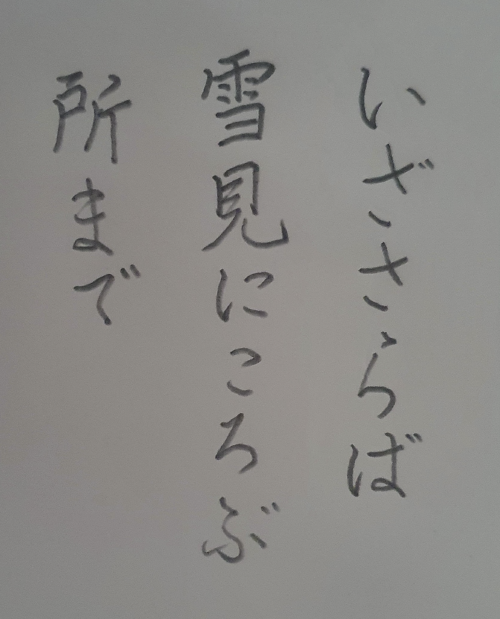 いざさらば
雪見にころぶ
所まで